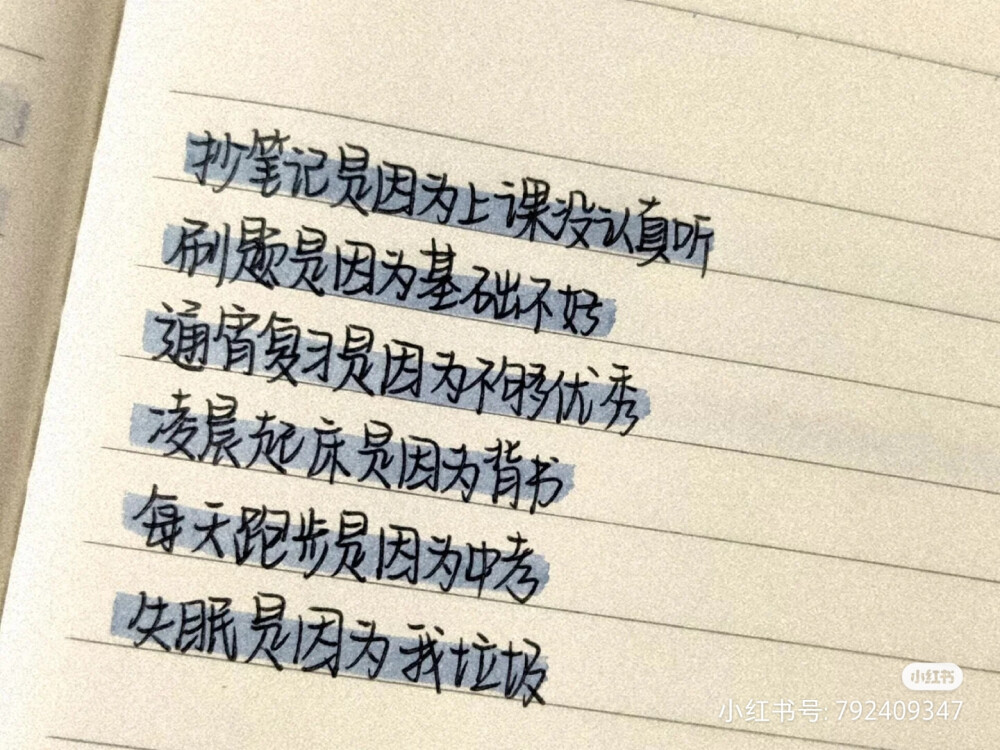 抄笔记是因为上课没认真听
刷题是因为基础不好
通宵复习是因为不够优秀
凌晨起床是因为背书
每天跑步是因为中考
失眠是因为我垃圾
小红书
小红书号: 792409347